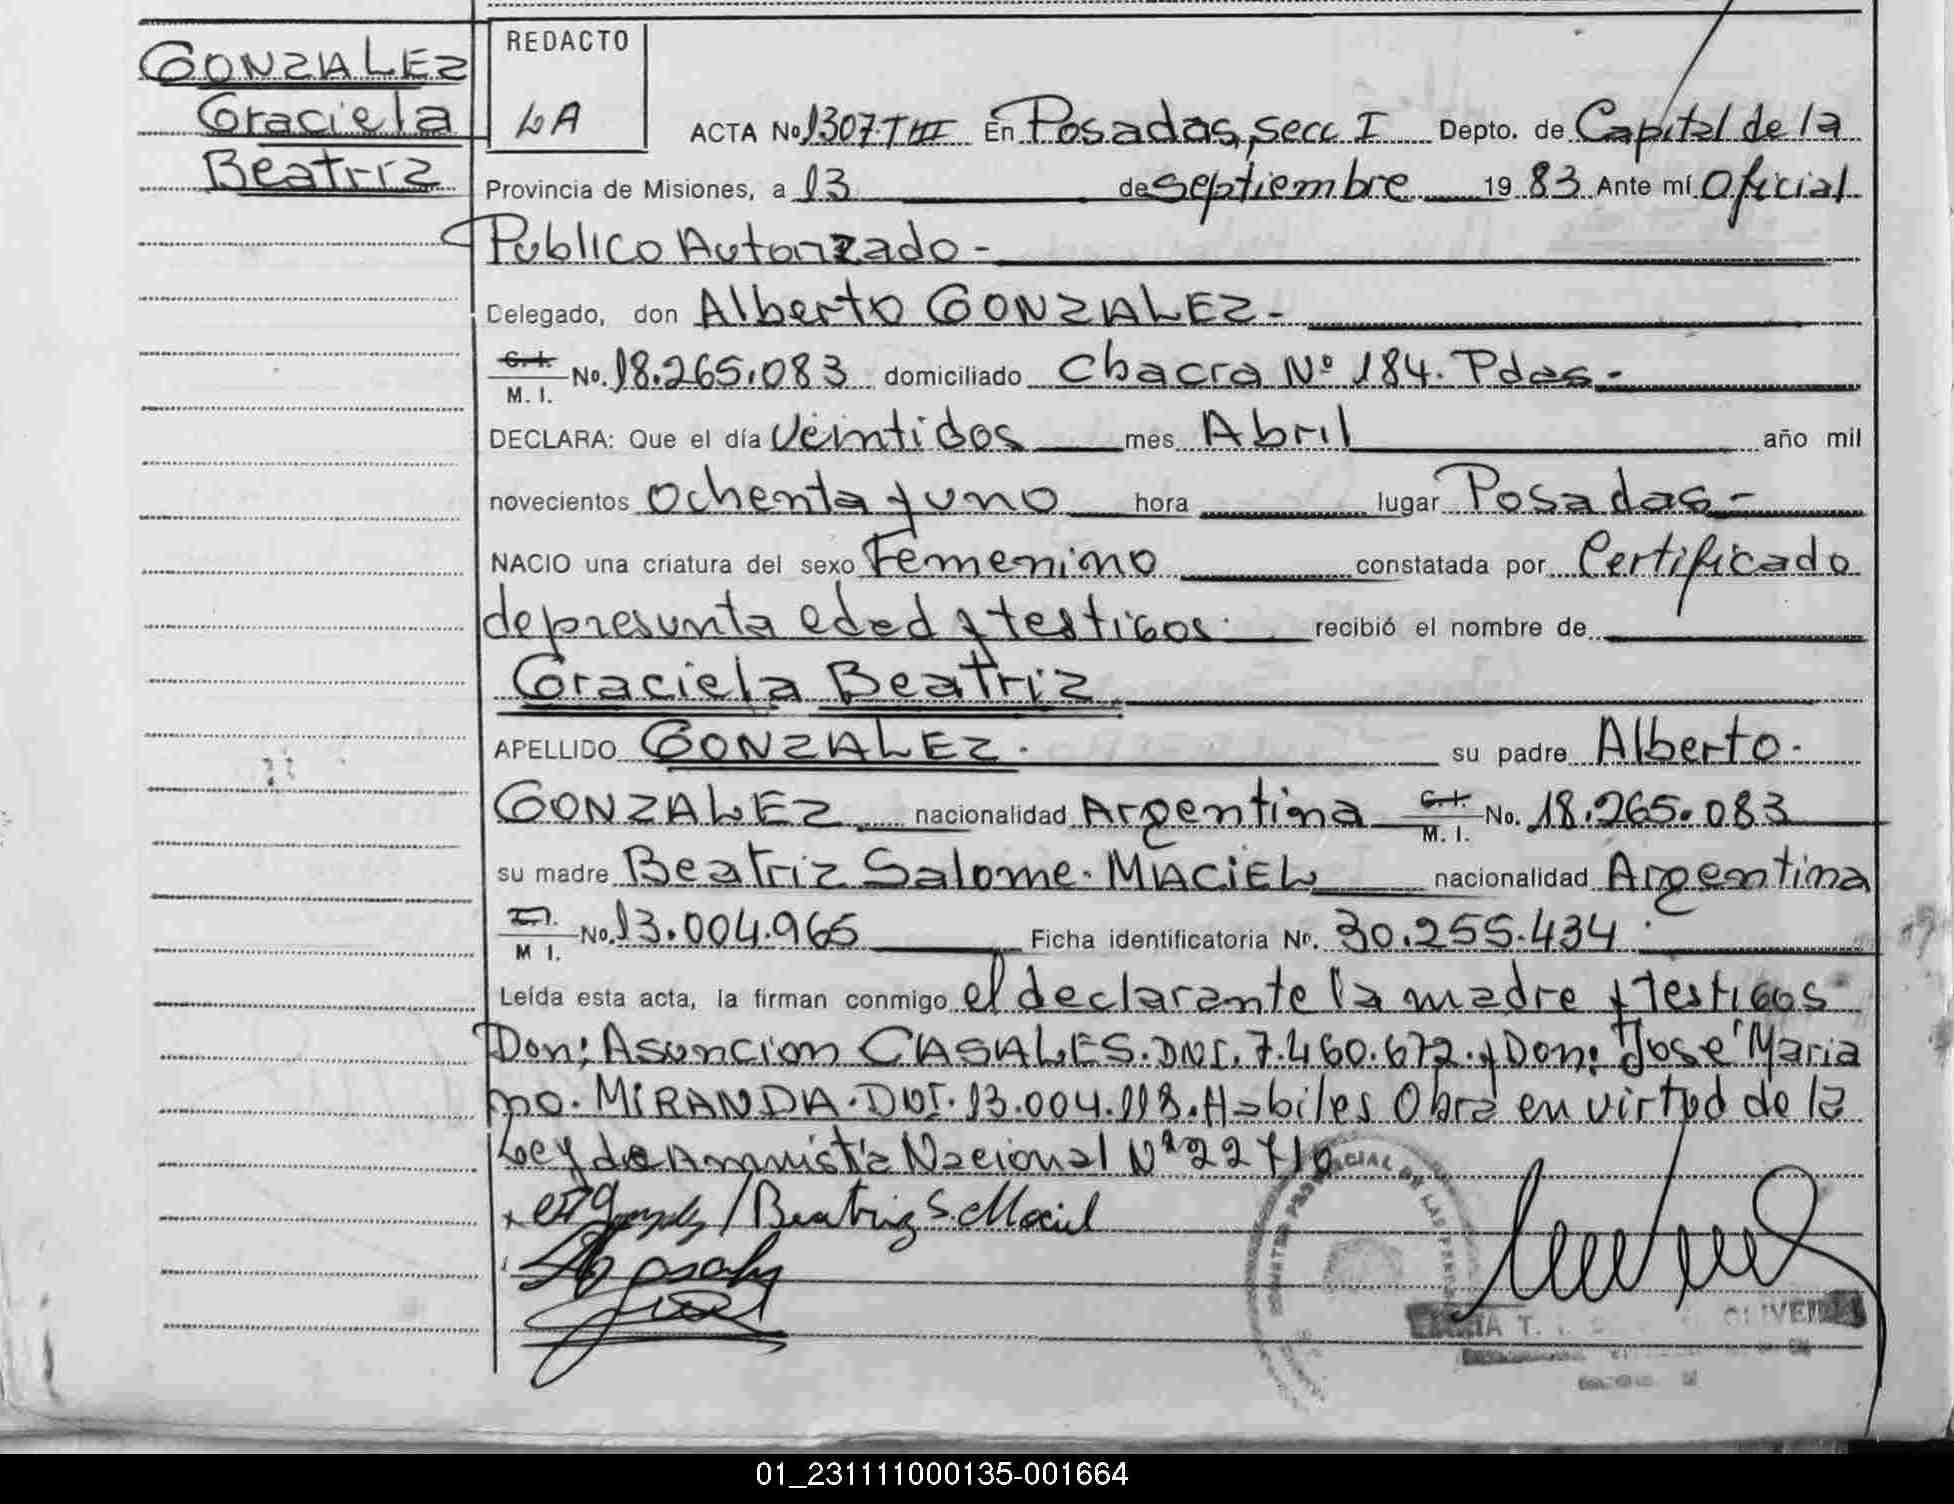 GONZALEZ
Graciela
Beatriz
REDACTO
LA
ACTA No 1307.T III En Posadas, secc I Depto. de Capital de la
Provincia de Misiones, a 13 de septiembre 19 83 Ante mí Oficial
Publico Autorizado -
Delegado, don Alberto GONZALEZ -
C.I.
M. I. No. 18.265.083 domiciliado Chacra Nº 184. Pdas. -
DECLARA: Que el día veintidos mes Abril año mil
novecientos ochenta y uno hora lugar Posadas -
NACIO una criatura del sexo Femenino constatada por Certificado
de presunta edad y testigos. recibió el nombre de
Graciela Beatriz
APELLIDO GONZALEZ. su padre Alberto.
GONZALEZ nacionalidad Argentina C.I. M. I. No. 18.265.083
su madre Beatriz Salome. MACIEL nacionalidad Argentina
M I. No. 13.004.965 Ficha identificatoria Nº. 30.255.434
Leída esta acta, la firman conmigo el declarante la madre y testigos
Don; Asuncion CASALES. DNI. 7.460.672. y Don: José Maria
no. MIRANDA. DNI. 13.004.118. Habiles Obra en virtud de la
Ley de Amnistia Nacional Nº 22710
Beatriz S. Maciel
OLIVEIRA
01_231111000135-001664